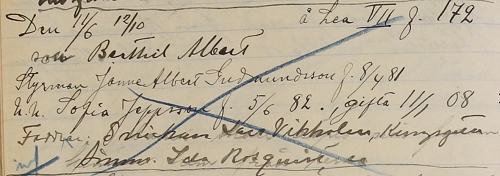 Den 11/6 12/10 å Lea VII f. 172
son Barthil Albert
Styrman Janne Albert Gudmundsson f. 8/4 81
H. h. Sofia Jeppsson f. 5/6 82. gifta 11/1 08
Faddrar: Lars Vikholm,
Ida Rosquist